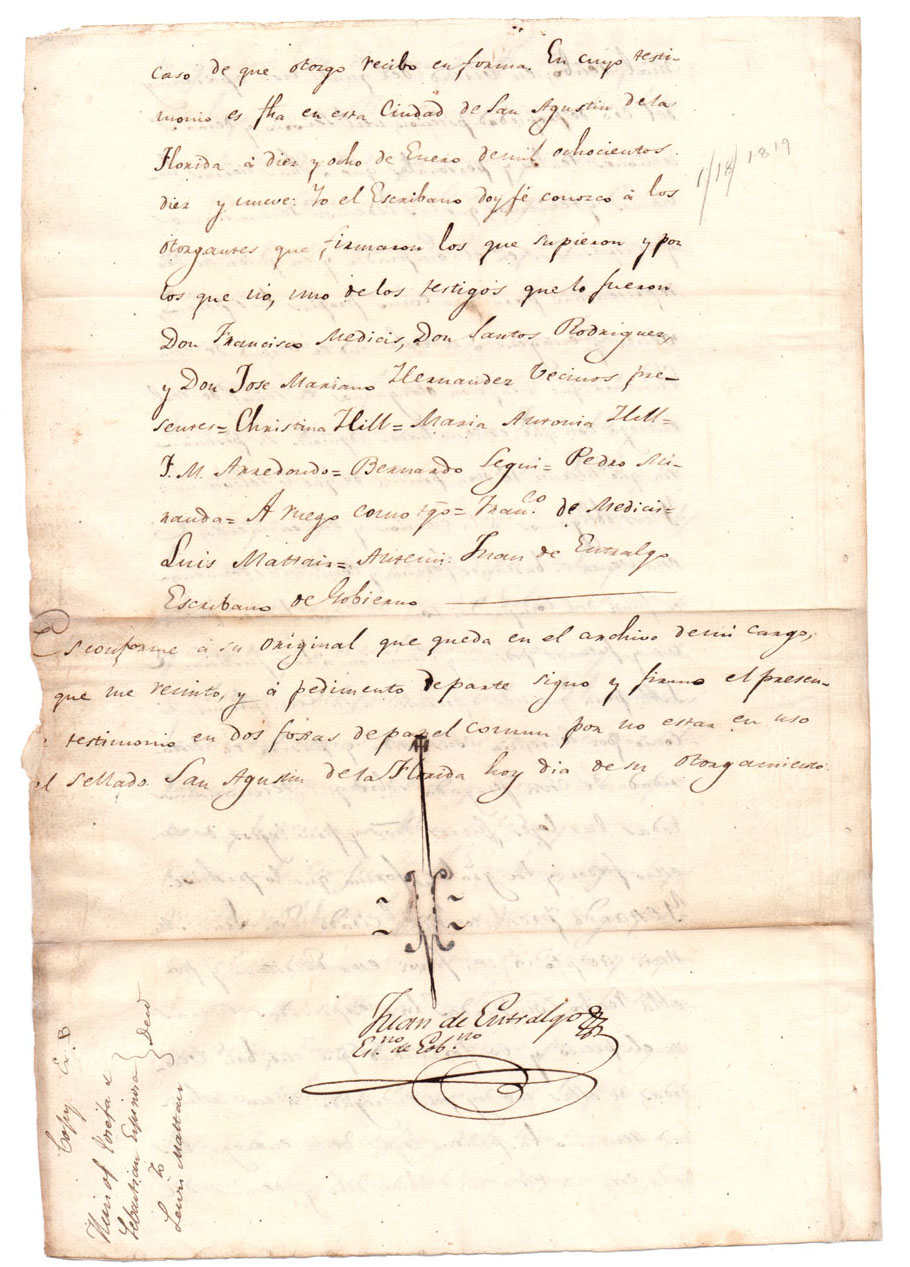 caso de que otorgo recibo en forma. En cuyo testi-
monio es fha en esta Ciudad de San Agustin de la
Florida á diez y ocho de Enero de mil ochocientos
diez y nueve: Yo el Escribano doy fé conosco á los
otorgantes que firmaron los que supieron y por
los que no, uno de los testigos que lo fueron
Don Francisco Medicis, Don Santos Rodriguez,
y Don Jose Mariano Hernandez Vecinos pre-
sentes= Christina Hill= Maria Antonia Hill=
J. M. Arredondo= Bernardo Segui= Pedro Mi-
randa= A ruego como tgo= Fran.co de Medicis=
Luis Mattair= Antemi: Juan de Entralgo
Escribano de Gobierno
Es conforme á su original que queda en el archivo de mi cargo,
que me remito, y á pedimento de parte signo y firmo el presen-
testimonio en dos fojas de papel comun por no estar en uso
el sellado. San Agustin de la Florida hoy dia de su otorgamiento.
1/18/1819
Juan de Entralgo
Es.no de Gob.no
Copy B
Heirs of Josefa &
Sebastian Espinosa } Deed
to
Lewis Mattair